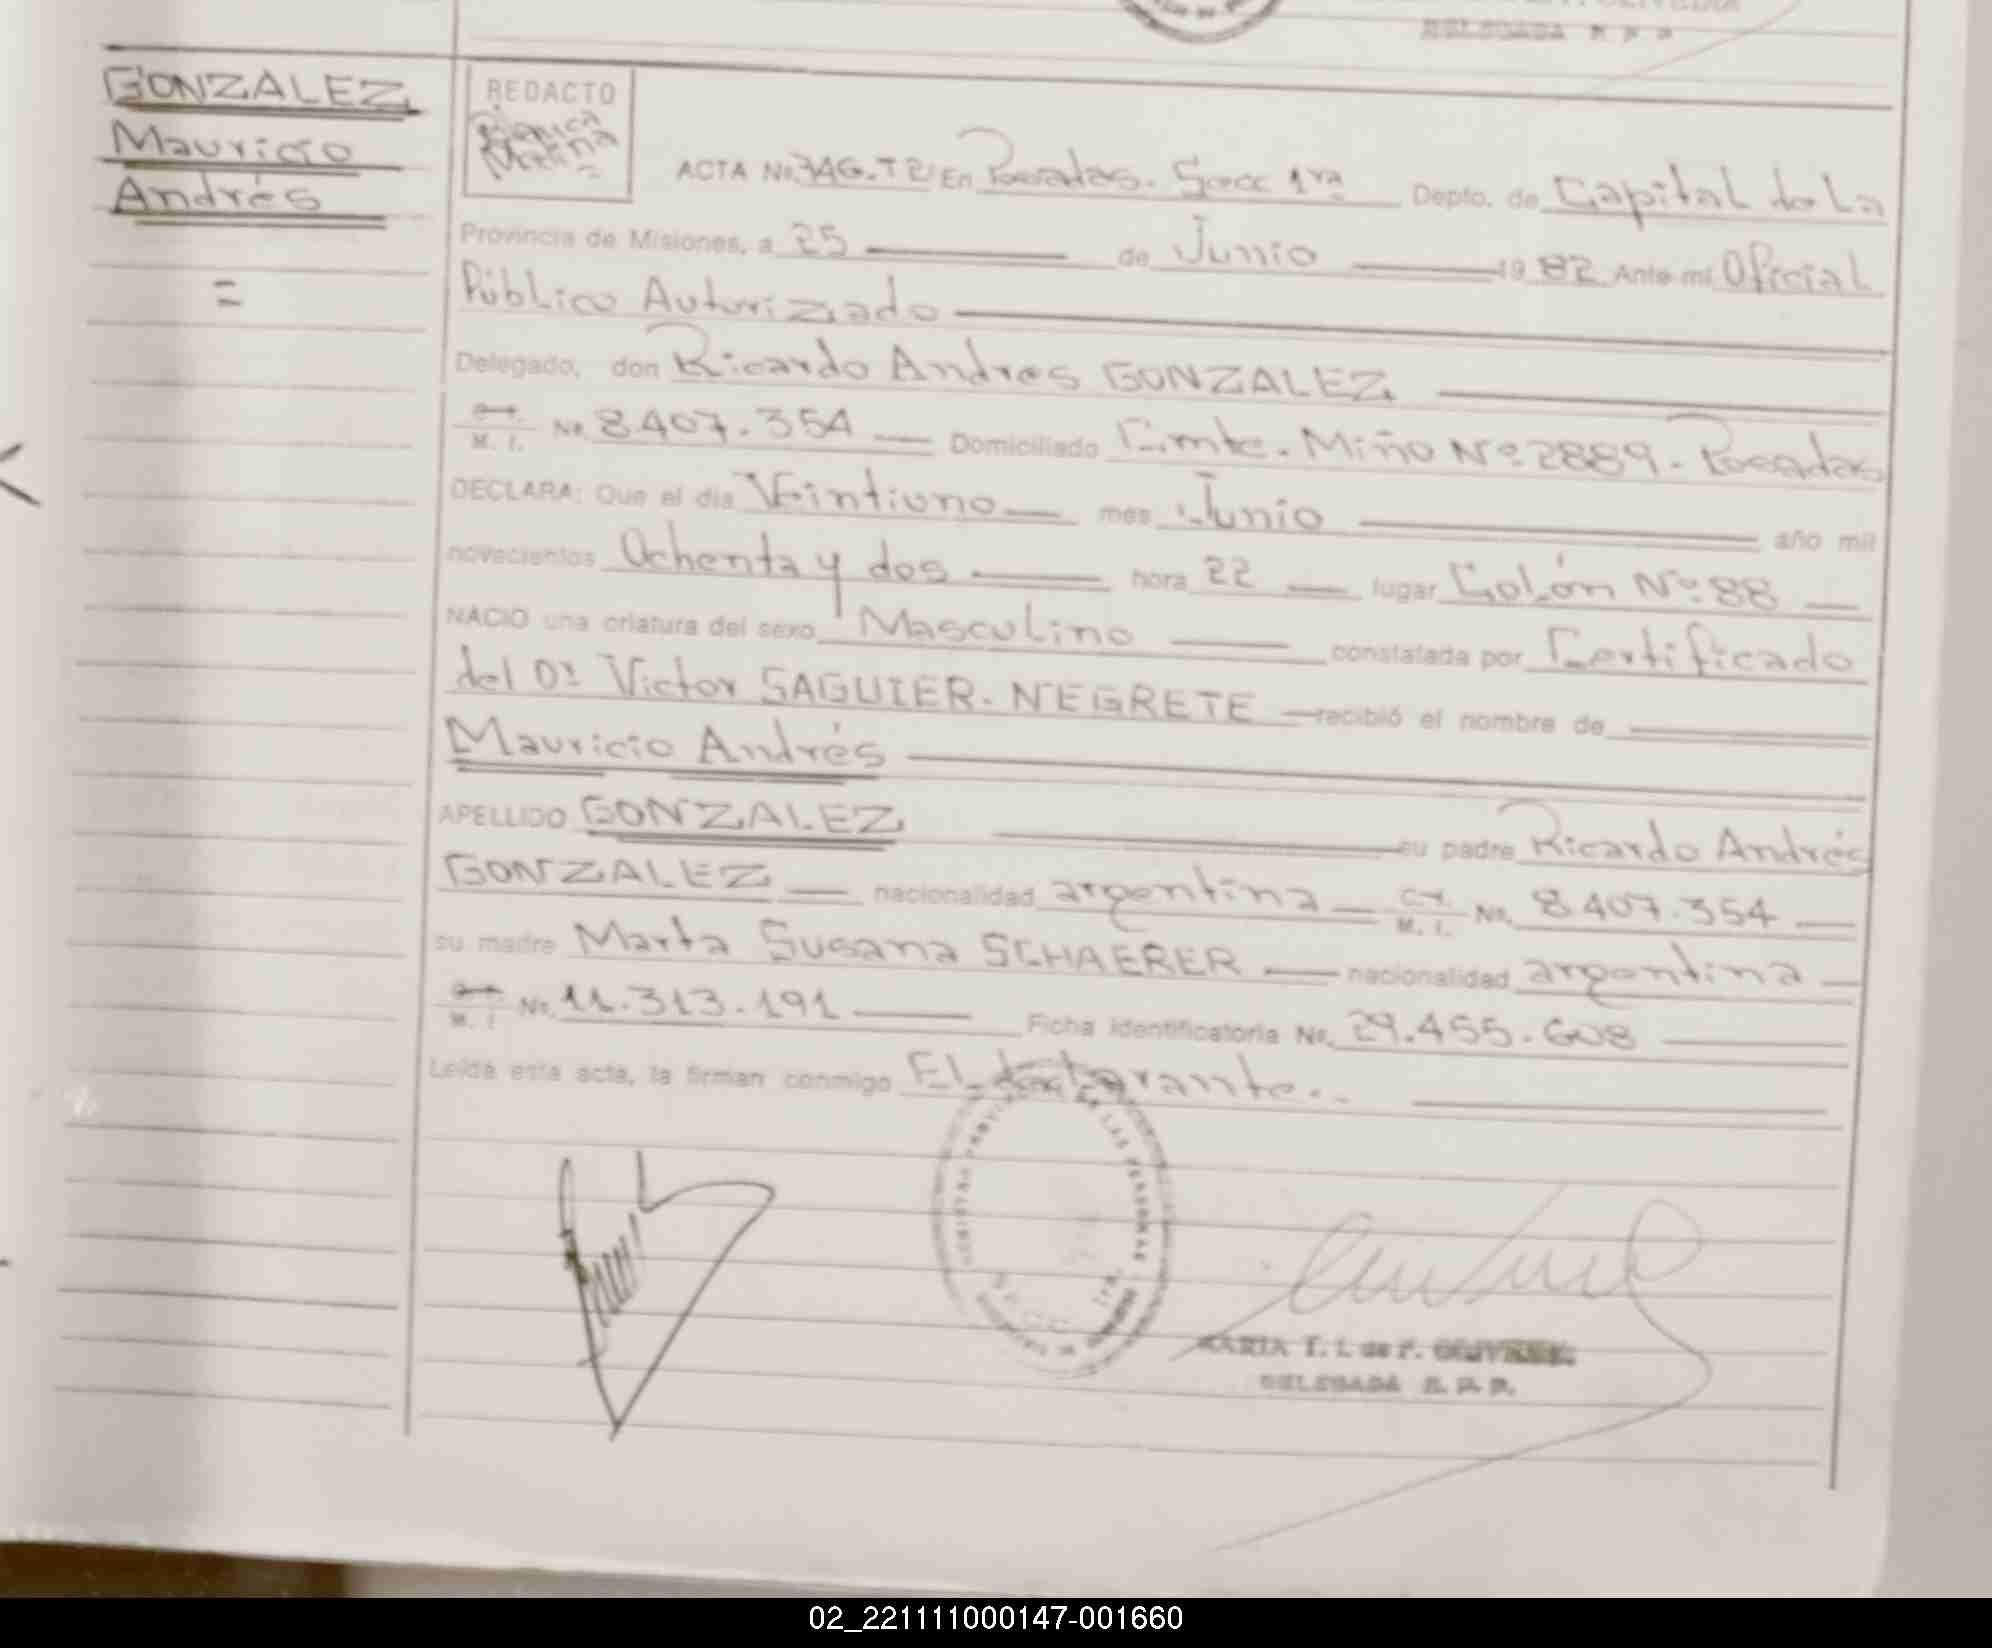 DELEGADA R P P
GONZALEZ
Mauricio
Andrés
=
REDACTO
ACTA No 746.T2 En Posadas. Secc 1ra Depto. de Capital de La
Provincia de Misiones, a 25 de Junio 1982 Ante mi Oficial
Público Autorizado
Delegado, don Ricardo Andres GONZALEZ
M. I. No. 8.407.354 Domiciliado Cmte. Miño Nº 2889. Posadas
DECLARA: Que el día Veintiuno mes Junio año mil
novecientos Ochenta y dos hora 22 lugar Colón Nº 88
NACIO una criatura del sexo Masculino constatada por Certificado
del Dr Victor SAGUIER. NEGRETE recibió el nombre de
Mauricio Andrés
APELLIDO GONZALEZ su padre Ricardo Andrés
GONZALEZ nacionalidad argentina M. I. No. 8.407.354
su madre Marta Susana SCHAERER nacionalidad argentina
M. I. No. 11.313.191 Ficha identificatoria No. 29.455.608
Leída esta acta, la firman conmigo El declarante..
DE LAS PERSONAS
MARIA T. I. de P.
DELEGADA R. P. P.
02_221111000147-001660